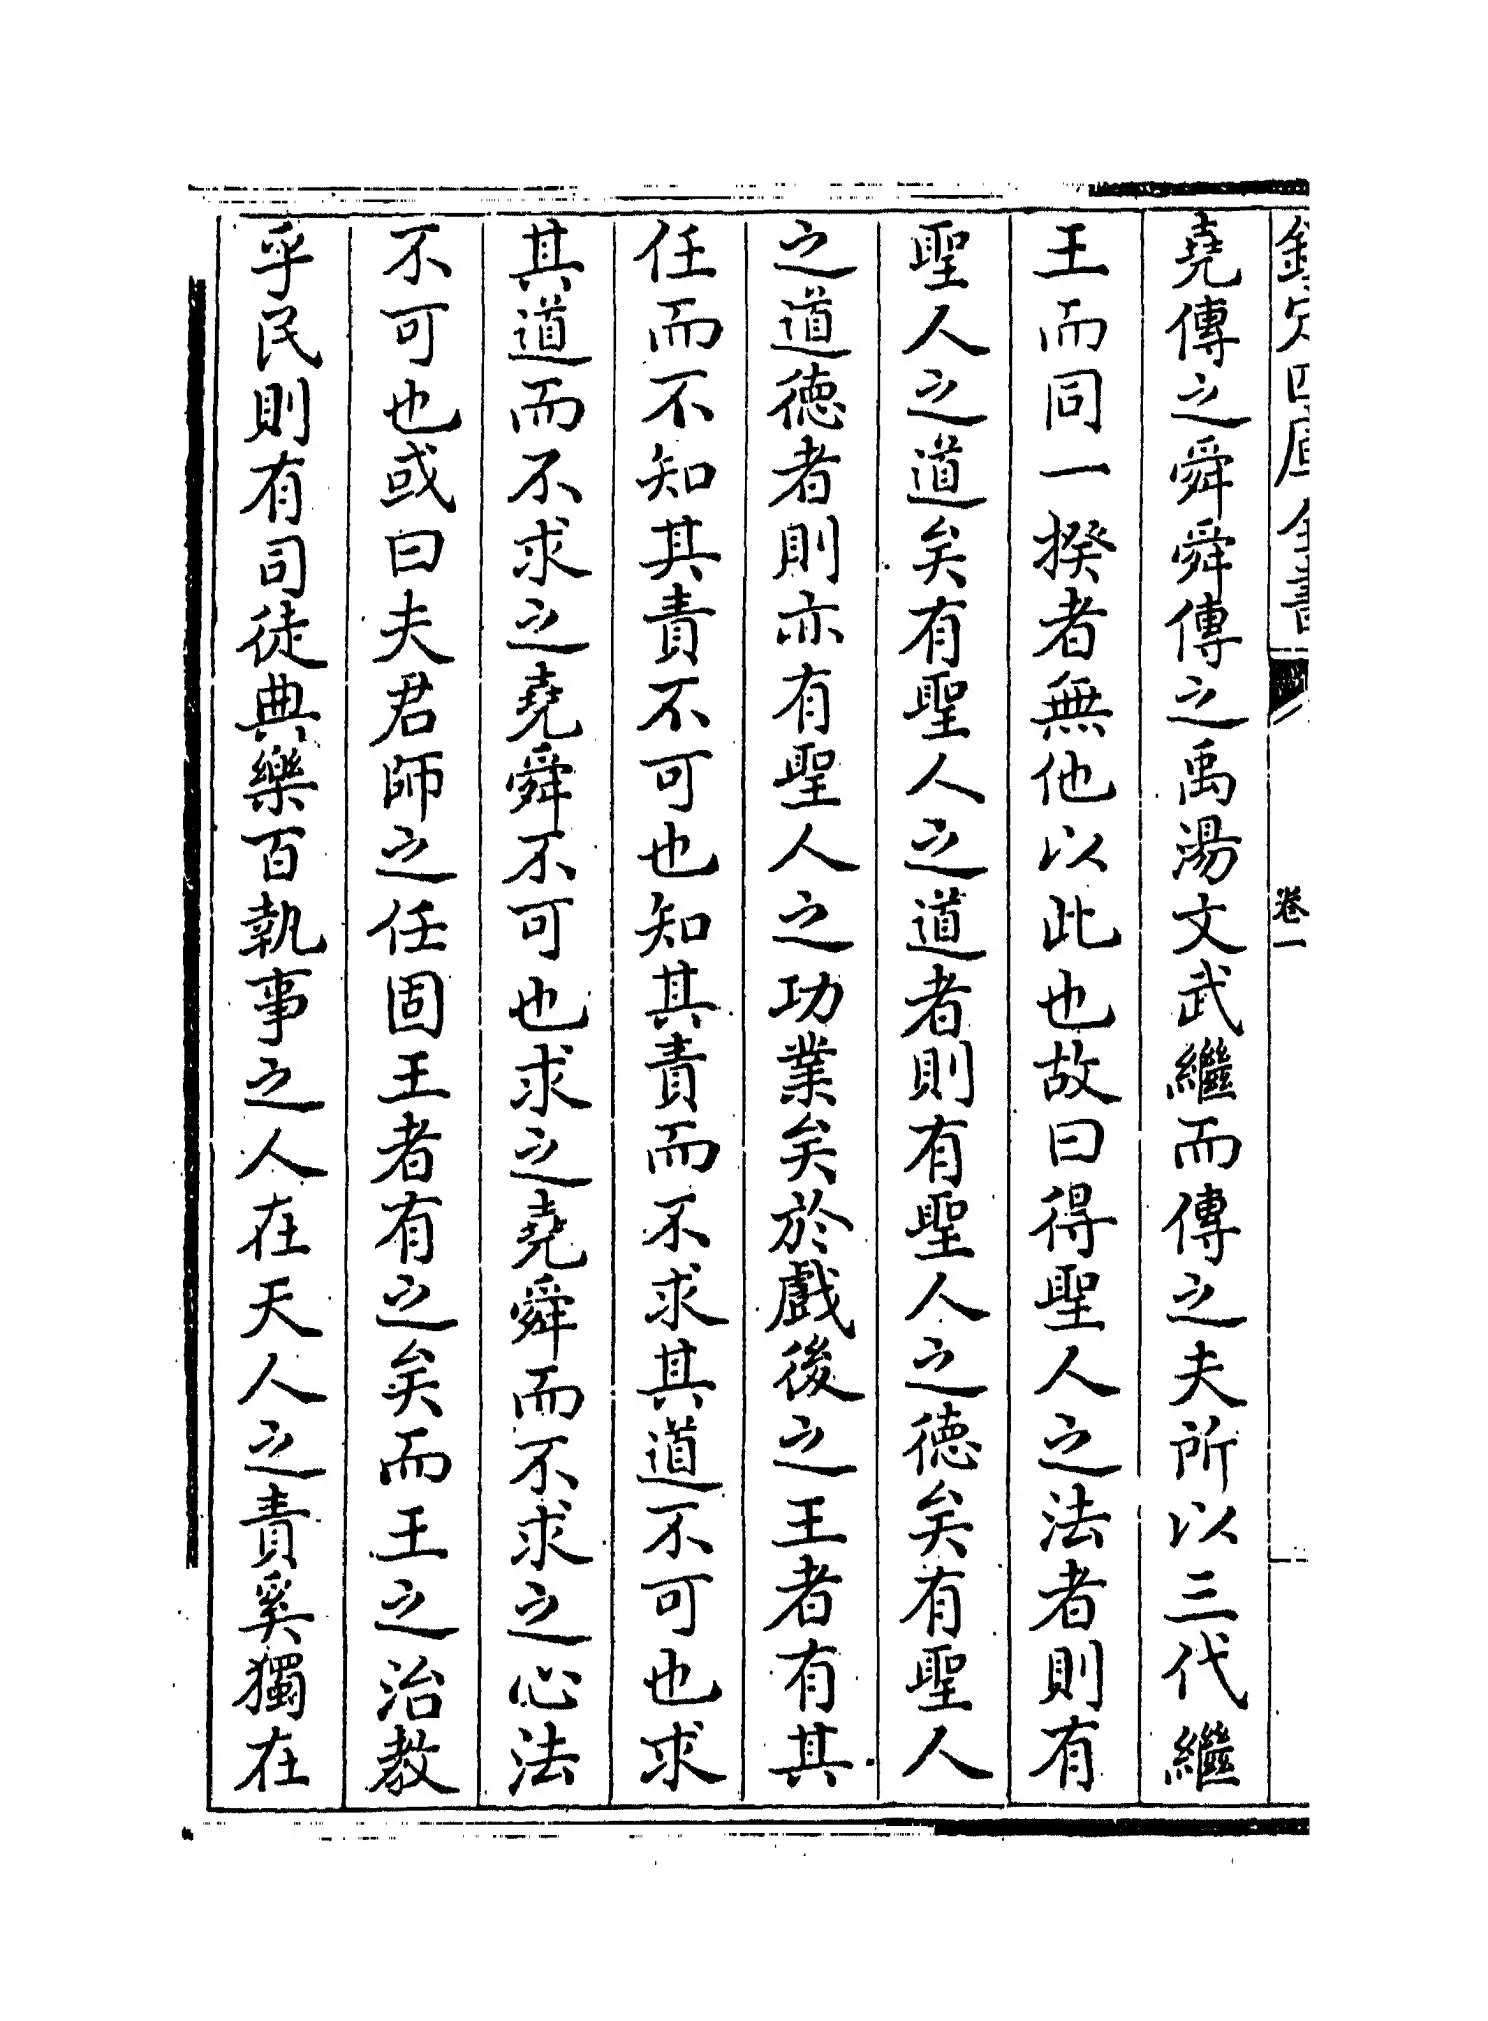 欽定四庫全書
卷一
堯傳之舜舜傳之禹湯文武繼而傳之夫所以三代繼
王而同一揆者無他以此也故曰得聖人之法者則有
聖人之道矣有聖人之道者則有聖人之德矣有聖人
之道德者則亦有聖人之功業矣於戲後之王者有其
任而不知其責不可也知其責而不求其道不可也求
其道而不求之堯舜不可也求之堯舜而不求之心法
不可也或曰夫君師之任固王者有之矣而王之治教
乎民則有司徒典樂百執事之人在天人之責奚獨在